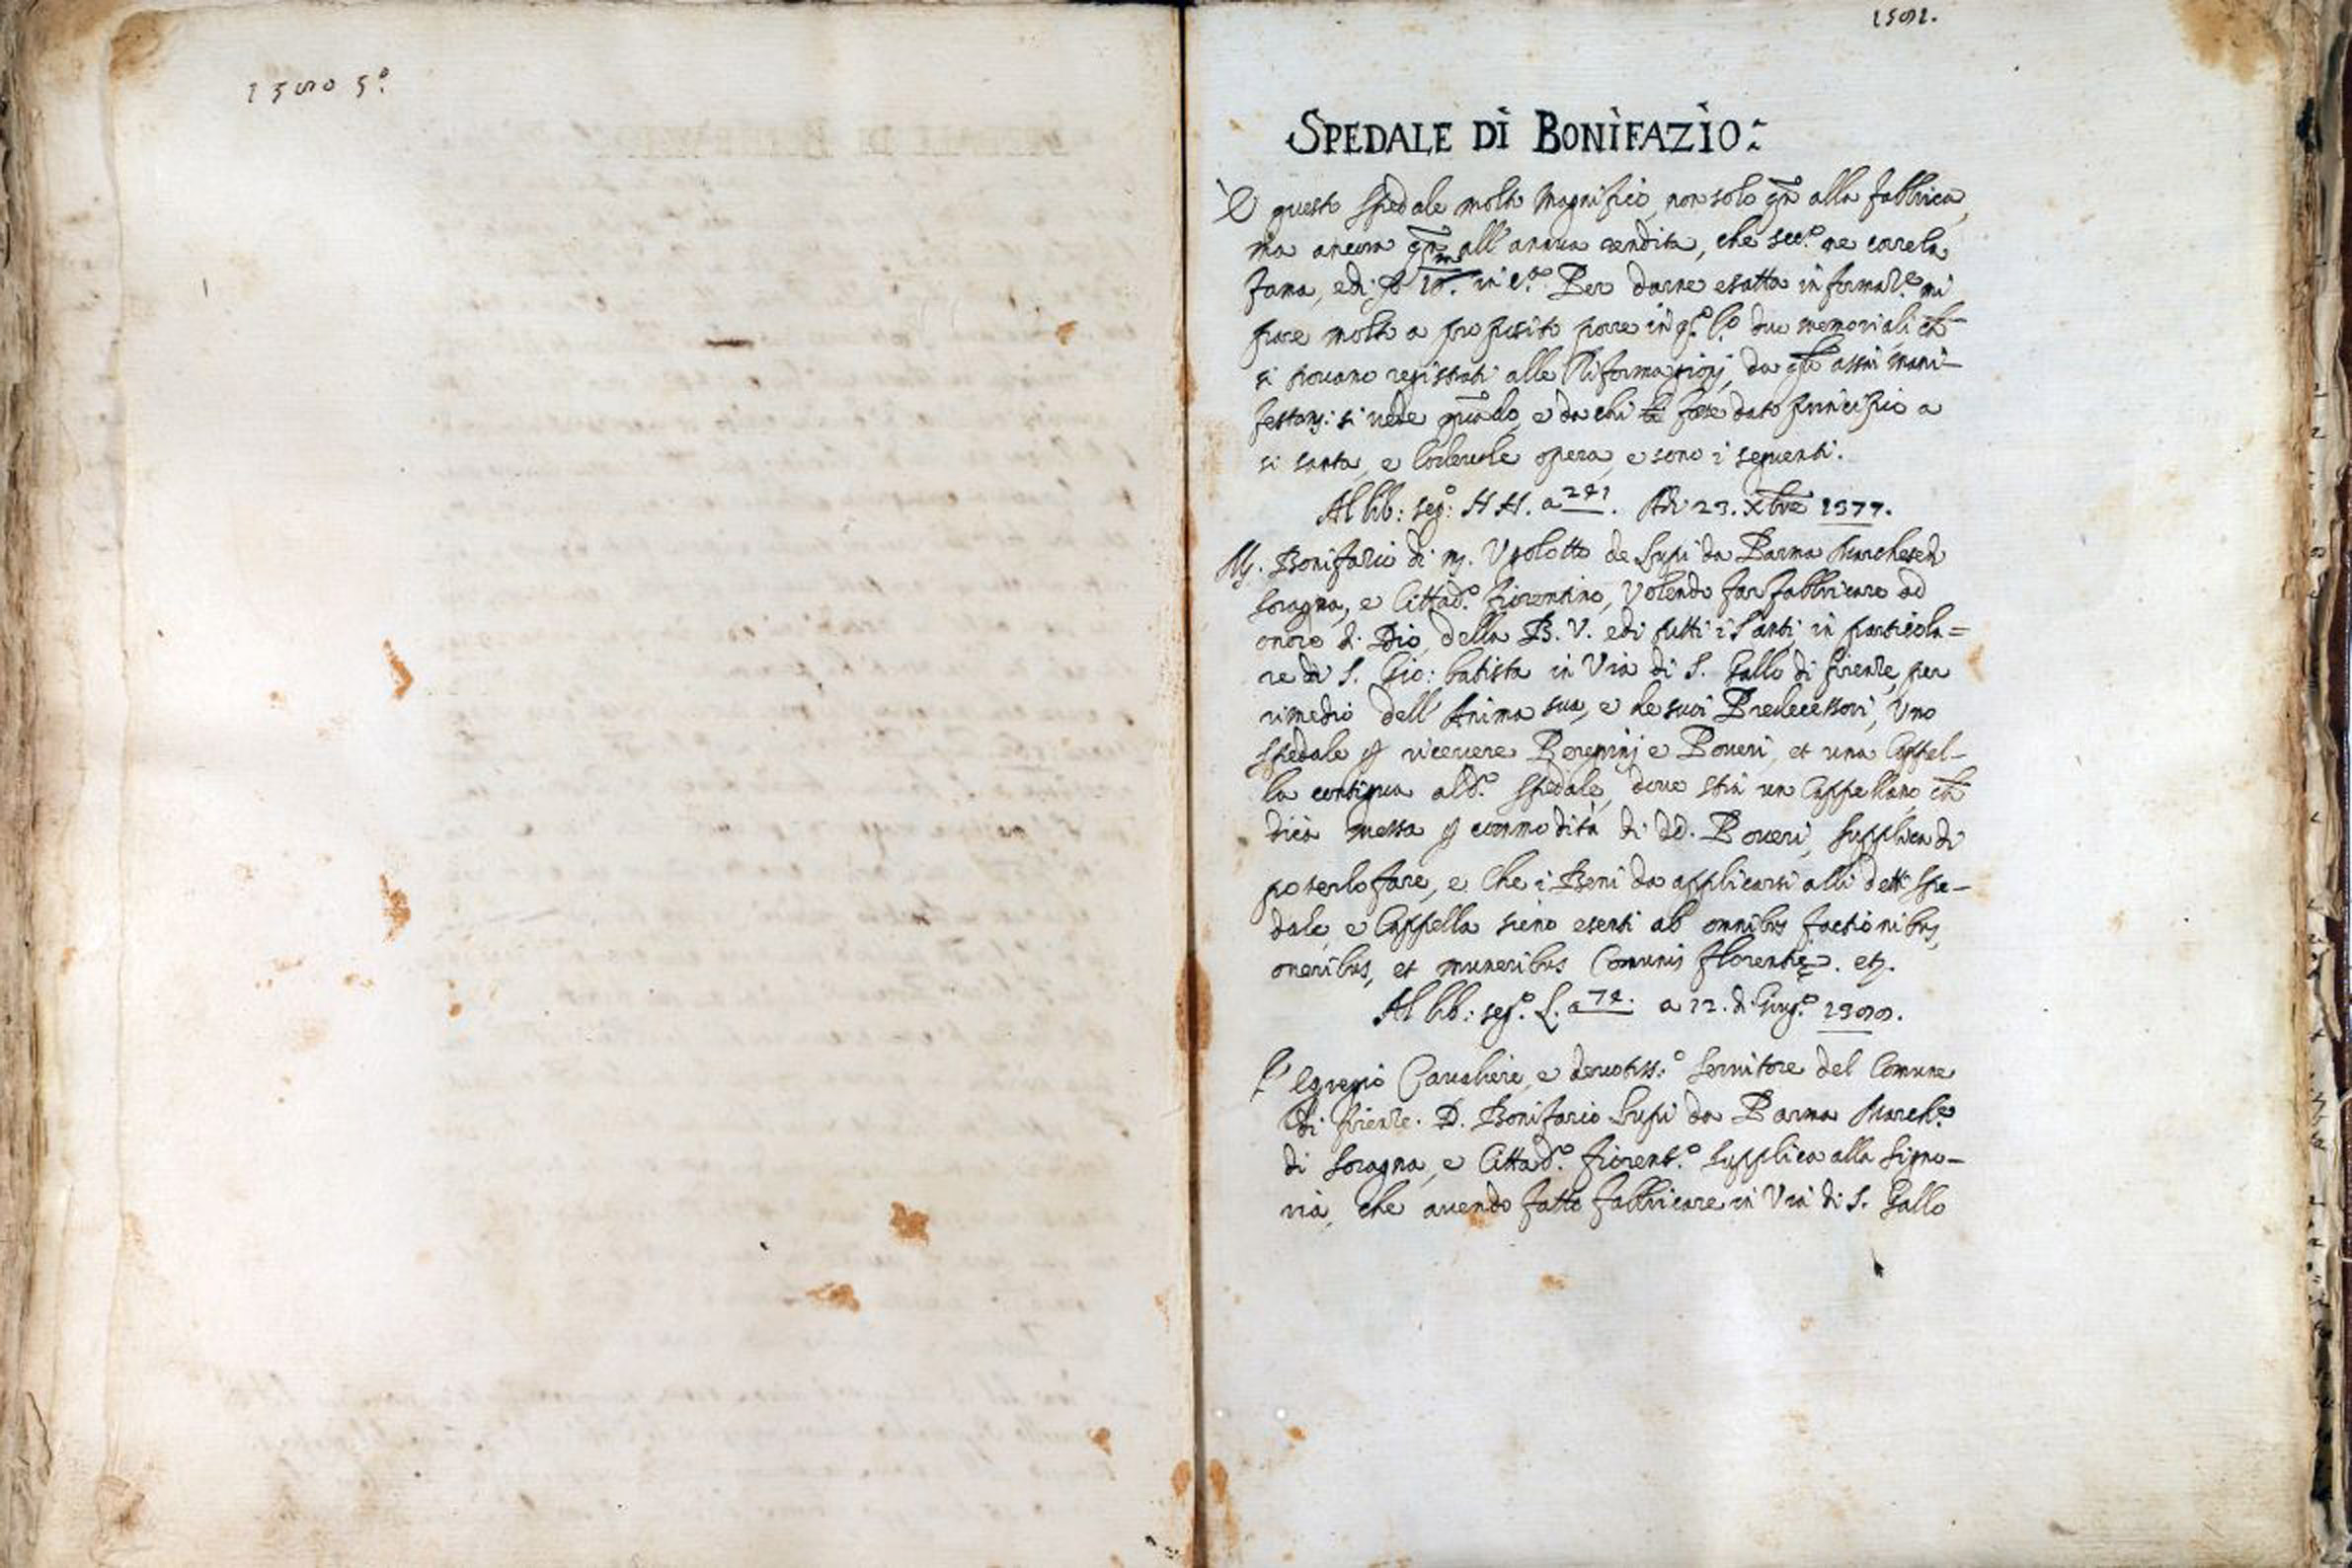 1590 5º
1591.
SPEDALE DI BONIFAZIO:
È questo Spedale molto Magnifico, non solo qñ alla fabbrica,
ma ancora qñ all'annua rendita, che sec.º ne corre la
fama, è di in c.ª Per darne esatta informaz.e mi
pare molto a proposito porre in q.º l.º due memoriali ch̃
si trovano registrati alle Riformagioni, da q̃li assai mani-
festam: si vede quãdo, e da chi fosse dato principio a
si santa, e lodevole opera, e sono i seguenti.
Al lib: seg: HH. a 241. Adi 23. Xbre 1377.
M. Bonifazio di m. Ugolotto de Lupi da Parma Marchese di
Soragna, e Cittad.º fiorentino, Volendo far fabbricare ad
onore di Dio, della B. V. e di tutti i Santi, in particola=
re di S. Gio: batista in Via di S. Gallo di firenze, per
rimedio dell'Anima sua, e de suoi Predecessori, Uno
Spedale p ricevere Peregrini e Poveri, et una Cappel-
la contigua al d.º Spedale, dove stia un Cappellano ch̃
dica messa p commodità di dd. Poveri, supplica di
poterlo fare, e che i Beni da applicarsi alli detti Spe-
dale, e Cappella sieno esenti ab omnibus factionibus,
oneribus, et muneribus Comunis florentię. etc.
Al lib: seg.º L. a 74. a 12. di Giug.º 1388.
L'Egregio Cavaliere, e devotiss.º Servitore del Comune
di firenze. D. Bonifazio Lupi da Parma March.e
di Soragna, e Cittad.º fiorent.º supplica alla Signo-
ria, che avendo fatto fabbricare in Via di S. Gallo